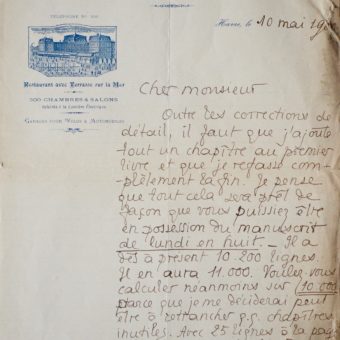 TÉLÉPHONE
Restaurant avec Terrasse sur la Mer
300 CHAMBRES & SALONS
GARAGES POUR VÉLOS & AUTOMOBILES
Havre, le 10 mai 19
Cher monsieur
Outre les corrections de
détail, il faut que j'ajoute
tout un chapître au premier
livre et que je refasse com-
-plètement la fin. Je pense
que tout cela sera prêt de
façon que vous puissiez être
en possession du manuscrit
de lundi en huit. - Il a
dès à présent 10.200 lignes.
Il en aura 11.000. Voulez vous
calculer néanmoins sur 10 000
parce que je me déciderai peut
être à retrancher q.q. chapîtres
inutiles. Avec 25 lignes à la pag